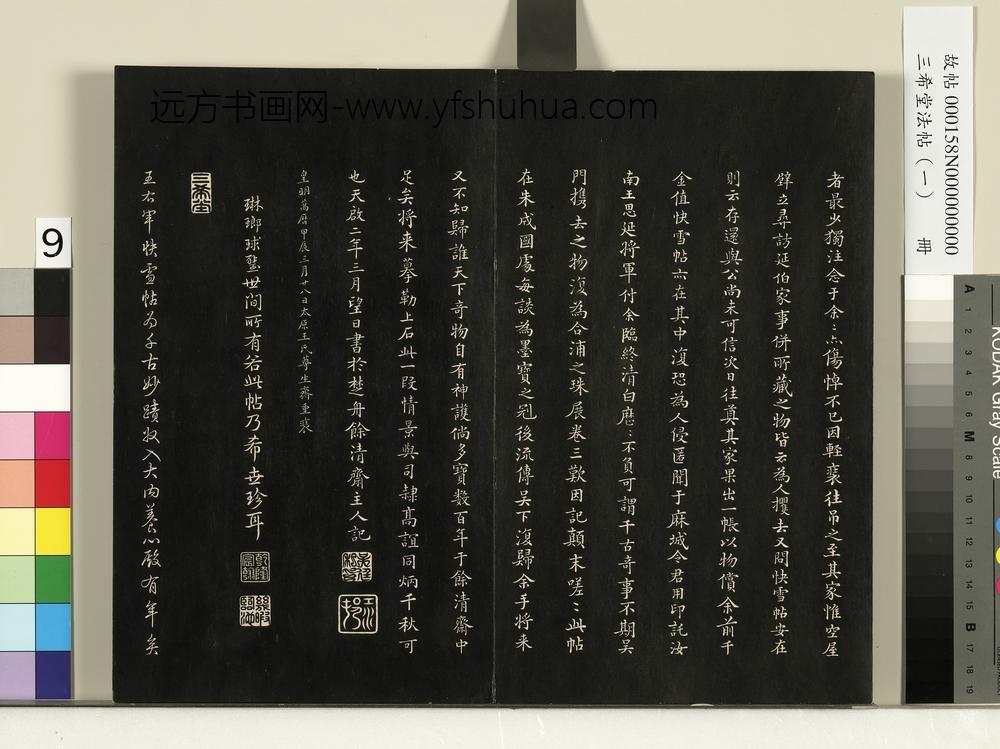 者最少獨注念于余二六傷悼不已因輕裘往吊之至其家惟空屋
壁立尋訪延伯家事併所藏之物皆云為人攫去又問快雪帖安在
則云存還與公尚未可信次日往奠其家果出一帳以物償余前千
金值快雪帖亦在其中復恐為人侵匿聞于麻城令君用印託汝
南王思延將軍付余臨終清白歷歷不負可謂千古奇事不期吳
門携去之物復為合浦之珠展卷三歎因記顛末嗟嗟此帖
在朱成國處每談為墨寶之冠後流傳吳下復歸余手將来
又不知歸誰天下奇物自有神護倘多寶數百年于餘清齋中
足矣將来摹勒上石此一段情景與司隸高誼同炳千秋可
也天啟二年三月望日書於楚舟餘清齋主人記
皇明萬曆甲辰三月廿八日太原王氏尊生齋重裘
琳瑯球璧世間所有若此帖乃希世珍耳
三希堂
王右軍快雪帖為千古妙蹟收入大內養心殿有年矣
远方书画网-www.yfshuhua.com
故帖000158N000000000
三希堂法帖（一） 冊
9
KODAK Gray Scale
A 1 2 3 4 5 6 M 8 9 10 11 12 13 14 15 B 17 18 19